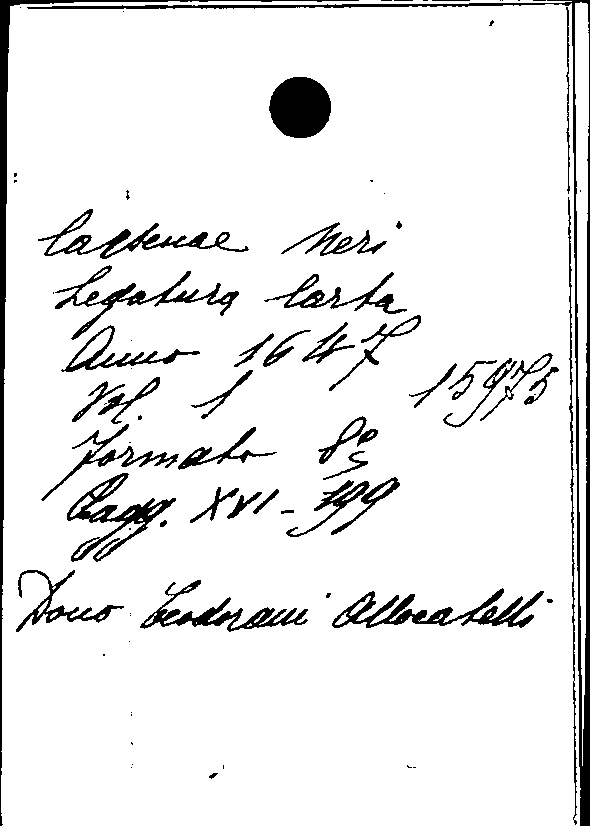 Caesenae Neri
Legatura Carta
Anno 1647
Vol. 1 15975
Formato 8º
Pagg. XVI - 199
Dono Teodorani Allocatelli